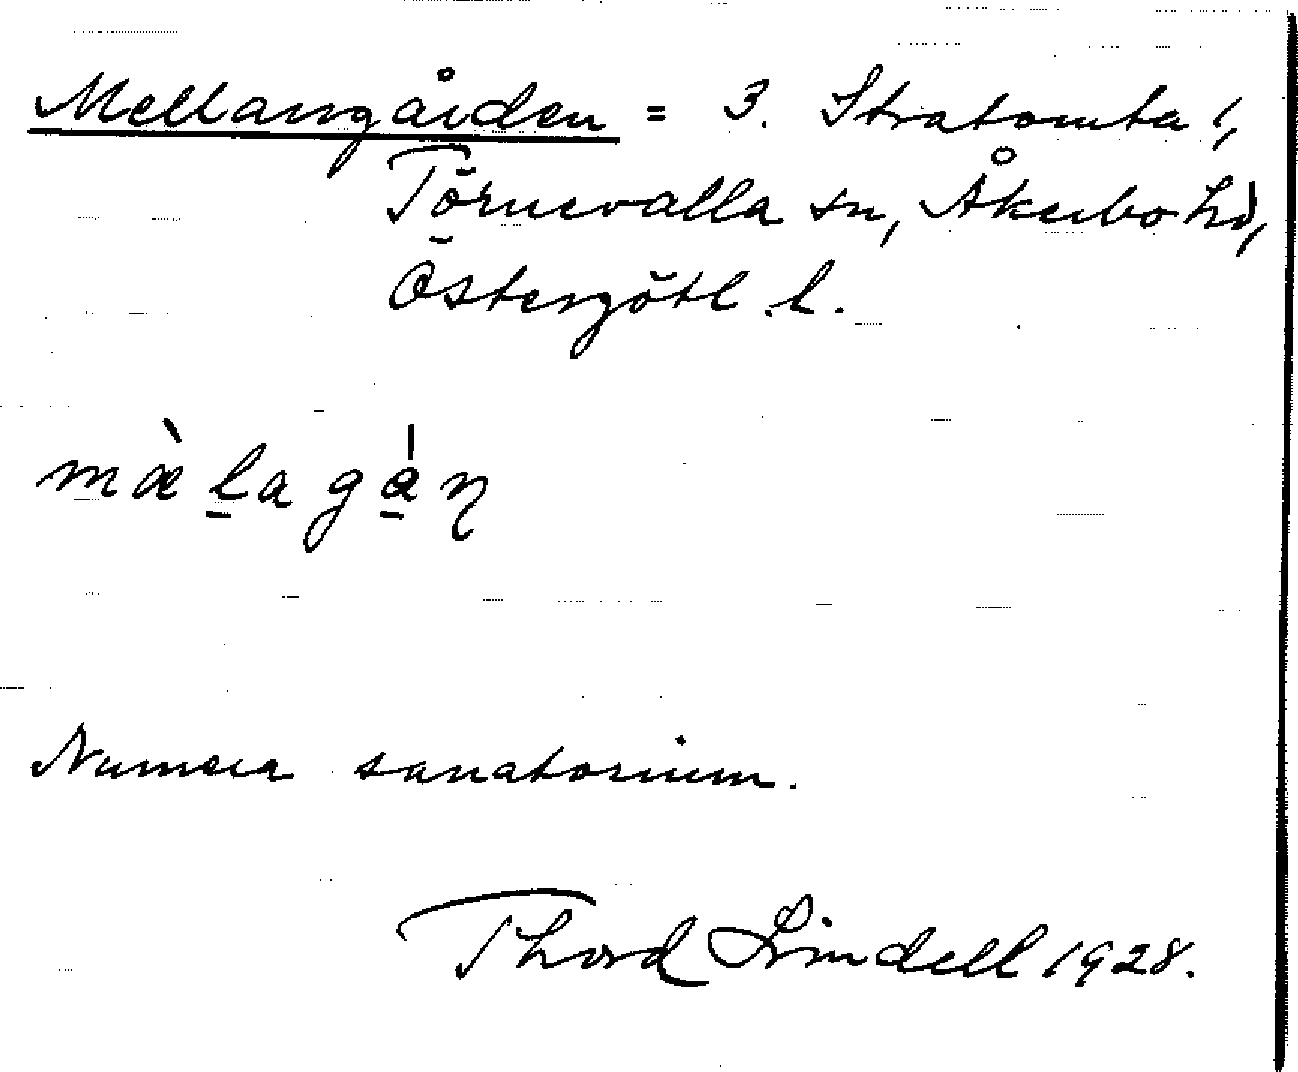 Mellangården = 3. Stratomta 1,
Törnevalla sn, Åkerbo hd,
Östergötl. l.
mæ̀l̠agá̠ɳ
Numera sanatorium.
Thord Lindell 1928.